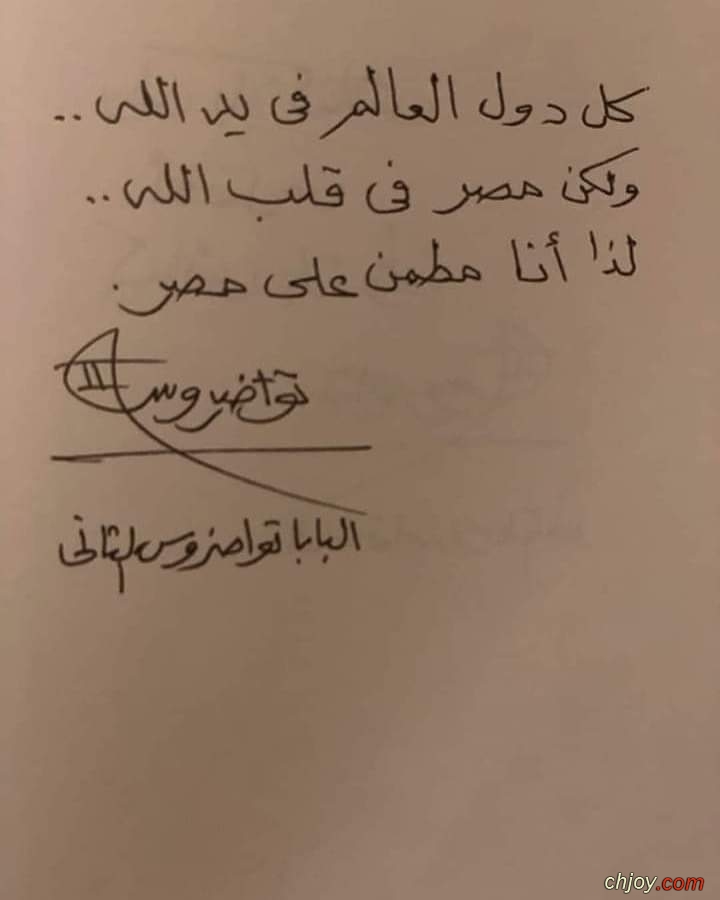 كل دول العالم فى يد الله..
ولكن مصر فى قلب الله..
لذا أنا مطمن على مصر.
تواضروس II
البابا تواضروس الثانى
chjoy.com